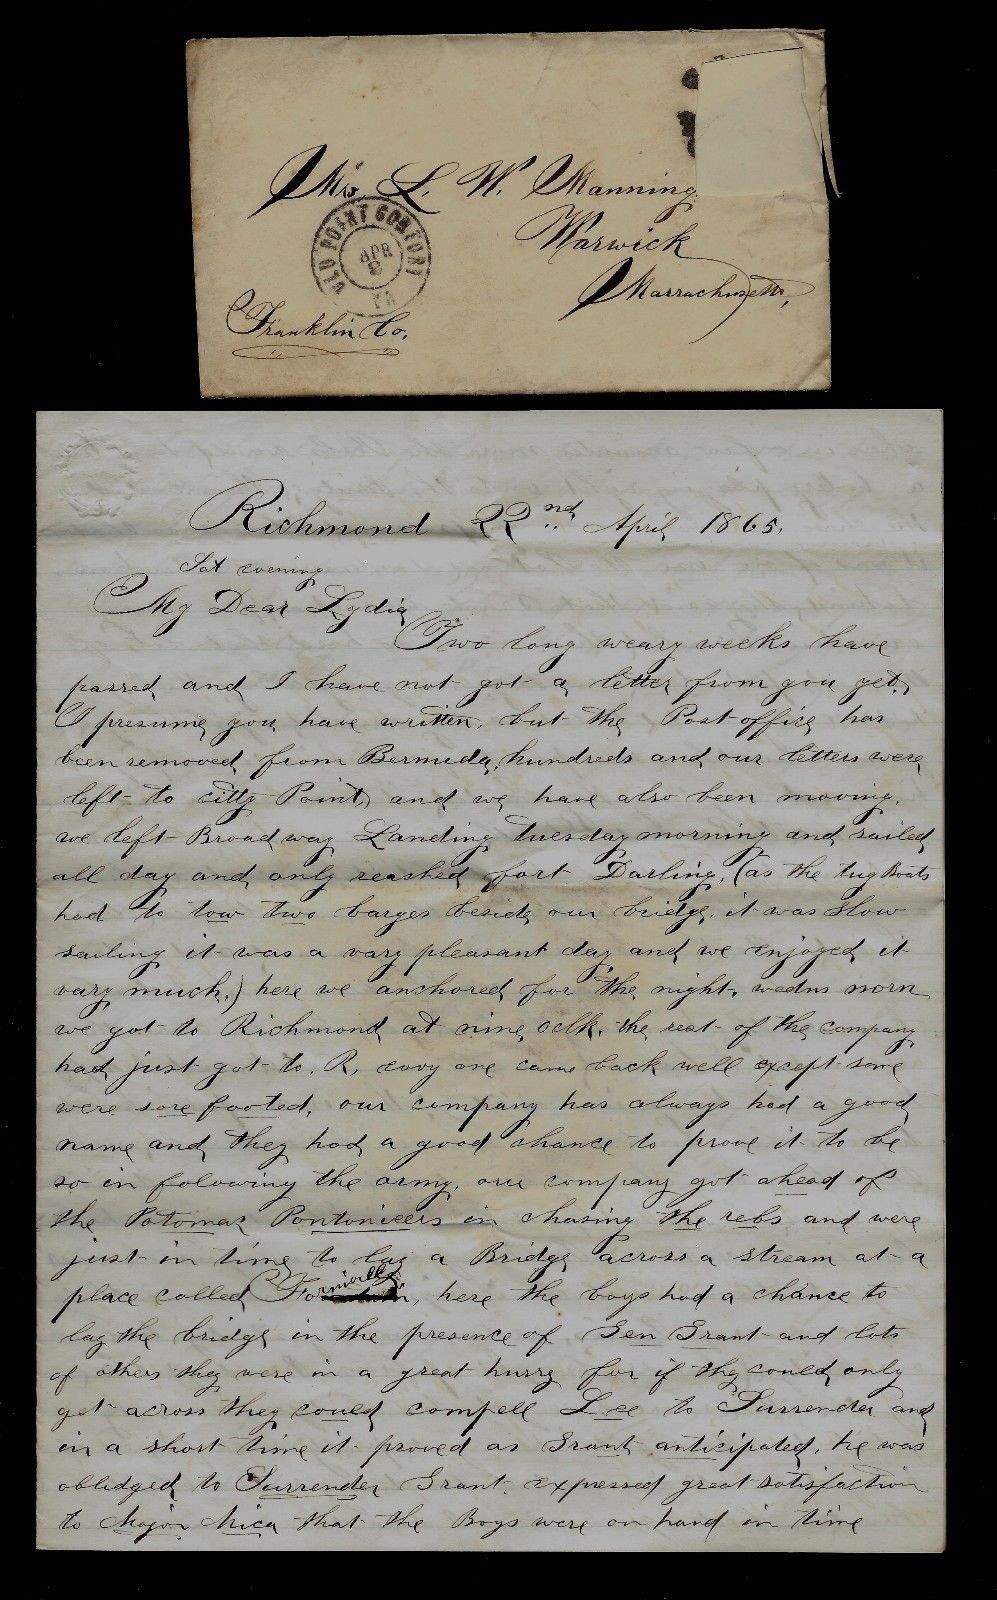 Mrs. L. W. Manning
Warwick
Massachusetts,
Franklin Co.
OLD POINT COMFORT
APR
VA
Richmond 22nd April 1865.
Sat evening
My Dear Lydia
Two long weary weeks have
passed and I have not got a letter from you yet,
I presume you have written, but the Post office has
been removed from Bermuda, hundreds and our letters were
left to citty Point, and we have also been moving,
we left Broad way Landing tuesday morning and sailed
all day and only reashed fort Darling, (as the tug Boats
had to tow two barges beside our bridge, it was slow
sailing it was a vary pleasant day and we enjoyed it
vary much,) here we anchored for the night, wedns morn
we got to Richmond at nine Oclk. the rest of the company
had just got to, R, evry one came back well except some
were sore footed, our company has always had a good
name and they had a good chance to prove it to be
so in folowing the army, our company got ahead of
the Potomac Pontoniers in chasing the rebs and were
just in time to lay a Bridge across a stream at a
place called Farmville, here the boys had a chance to
lay the bridge in the presence of Gen Grant and lots
of others they were in a great hurry for if thy could only
get across they could compell Lee to Surrender and
in a short time it proved as Grant anticipated, he was
obledged to Surrender Grant, expressed great satisfaction
to Major that the Boys were on hand in time